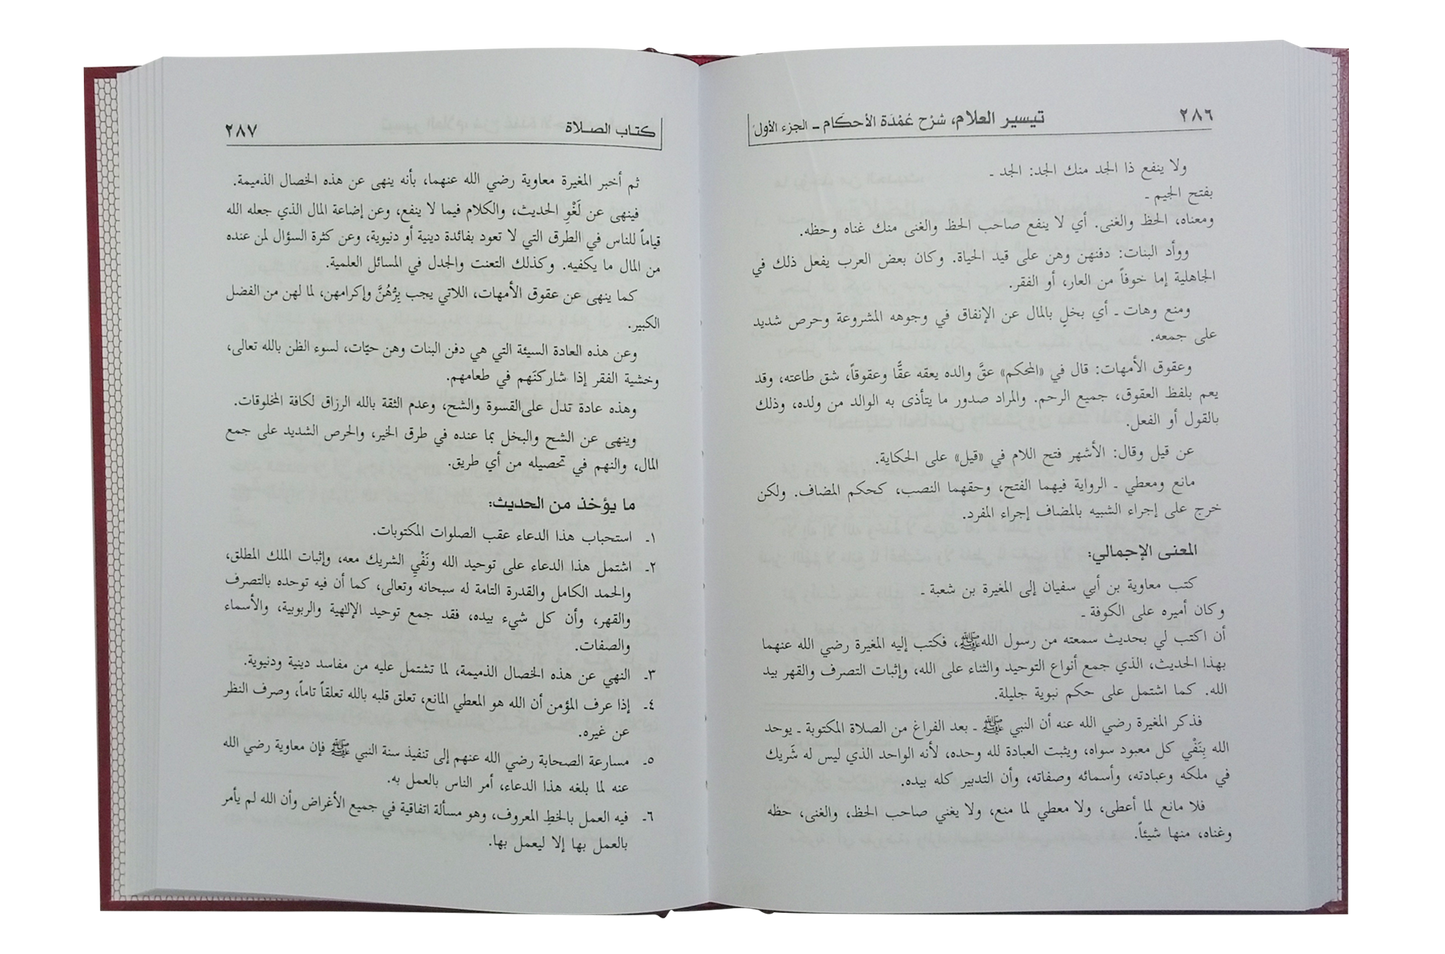 ٢٨٦
تيسير العلام، شرح عمدة الأحكام ـ الجزء الأول
ولا ينفع ذا الجد منك الجد: الجد ـ
بفتح الجيم ـ
ومعناه، الحظ والغنى. أي لا ينفع صاحب الحظ والغنى منك غناه وحظه.
ووأد البنات: دفنهن وهن على قيد الحياة. وكان بعض العرب يفعل ذلك في
الجاهلية إما خوفاً من العار، أو الفقر.
ومنع وهات ـ أي بخلٍ بالمال عن الإنفاق في وجوهه المشروعة وحرص شديد
على جمعه.
وعقوق الأمهات: قال في «المحكم» عقَّ والده يعقه عقًّا وعقوقاً، شق طاعته، وقد
يعم بلفظ العقوق، جميع الرحم. والمراد صدور ما يتأذى به الوالد من ولده، وذلك
بالقول أو الفعل.
عن قيل وقال: الأشهر فتح اللام في «قيل» على الحكاية.
مانع ومعطي ـ الرواية فيهما الفتح، وحقهما النصب، كحكم المضاف. ولكن
خرج على إجراء الشبيه بالمضاف إجراء المفرد.
المعنى الإجمالي:
كتب معاوية بن أبي سفيان إلى المغيرة بن شعبة ـ
وكان أميره على الكوفة ـ
أن اكتب لي بحديث سمعته من رسول الله ﷺ، فكتب إليه المغيرة رضي الله عنهما
بهذا الحديث، الذي جمع أنواع التوحيد والثناء على الله، وإثبات التصرف والقهر بيد
الله. كما اشتمل على حكم نبوية جليلة.
فذكر المغيرة رضي الله عنه أن النبي ﷺ ـ بعد الفراغ من الصلاة المكتوبة ـ يوحد
الله بِنَفْي كل معبود سواه، ويثبت العبادة لله وحده، لأنه الواحد الذي ليس له شَريك
في ملكه وعبادته، وأسمائه وصفاته، وأن التدبير كله بيده.
فلا مانع لما أعطى، ولا معطي لما منع، ولا يغني صاحب الحظ، والغنى، حظه
وغناه، منها شيئاً.
كتاب الصلاة
٢٨٧
ثم أخبر المغيرة معاوية رضي الله عنهما، بأنه ينهى عن هذه الخصال الذميمة.
فينهى عن لَغْوِ الحديث، والكلام فيما لا ينفع، وعن إضاعة المال الذي جعله الله
قياماً للناس في الطرق التي لا تعود بفائدة دينية أو دنيوية، وعن كثرة السؤال لمن عنده
من المال ما يكفيه. وكذلك التعنت والجدل في المسائل العلمية.
كما ينهى عن عقوق الأمهات، اللاتي يجب بِرُّهُنَّ وإكرامهن، لما لهن من الفضل
الكبير.
وعن هذه العادة السيئة التي هي دفن البنات وهن حيّات، لسوء الظن بالله تعالى،
وخشية الفقر إذا شاركنَهم في طعامهم.
وهذه عادة تدل على القسوة والشح، وعدم الثقة بالله الرزاق لكافة المخلوقات.
وينهى عن الشح والبخل بما عنده في طرق الخير، والحرص الشديد على جمع
المال، والنهم في تحصيله من أي طريق.
ما يؤخذ من الحديث:
١ـ استحباب هذا الدعاء عقب الصلوات المكتوبات.
٢ـ اشتمل هذا الدعاء على توحيد الله ونَفْيِ الشريك معه، وإثبات الملك المطلق،
والحمد الكامل والقدرة التامة له سبحانه وتعالى، كما أن فيه توحده بالتصرف
والقهر، وأن كل شيء بيده، فقد جمع توحيد الإلهية والربوبية، والأسماء
والصفات.
٣ـ النهي عن هذه الخصال الذميمة، لما تشتمل عليه من مفاسد دينية ودنيوية.
٤ـ إذا عرف المؤمن أن الله هو المعطي المانع، تعلق قلبه بالله تعلقاً تاماً، وصرف النظر
عن غيره.
٥ـ مسارعة الصحابة رضي الله عنهم إلى تنفيذ سنة النبي ﷺ فإن معاوية رضي الله
عنه لما بلغه هذا الدعاء، أمر الناس بالعمل به.
٦ـ فيه العمل بالخط المعروف، وهو مسألة اتفاقية في جميع الأغراض وأن الله لم يأمر
بالعمل بها إلا ليعمل بها.